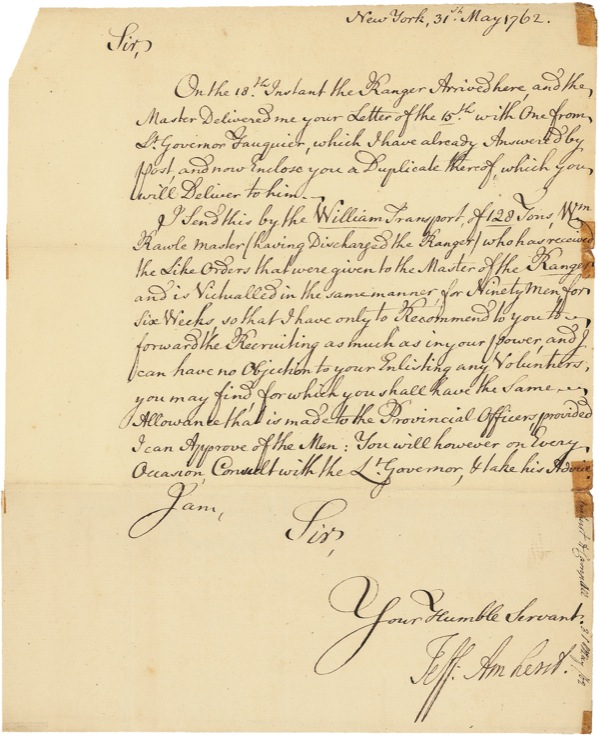 New York, 31.st May 1762.
Sir,
On the 18.th Instant the Ranger Arrived here, and the
Master Delivered me your Letter of the 15.th with One from
Lt. Governor Fauquier, which I have already Answered by
post, and now Inclose you a Duplicate thereof, which you
will Deliver to him.
I Send this by the William Transport, of 128 Tons, Wm
Rawle Master (having Discharged the Ranger) who has received
the Like Orders that were given to the Master of the Ranger,
and is Victualled in the same manner, for Ninety Men for
six Weeks, so that I have only to Recommend to you to
forward the Recruiting as much as in your power, and I
can have no Objection to your Enlisting any Volunteers,
you may find, for which you shall have the Same
Allowance that is made to the Provincial Officers, provided
I can Approve of the Men: You will however on Every
Occasion, Consult with the Lt. Governor, & take his Advice.
I am,
Sir,
Your Humble Servant.
Jeff: Amherst.
31 May, 62